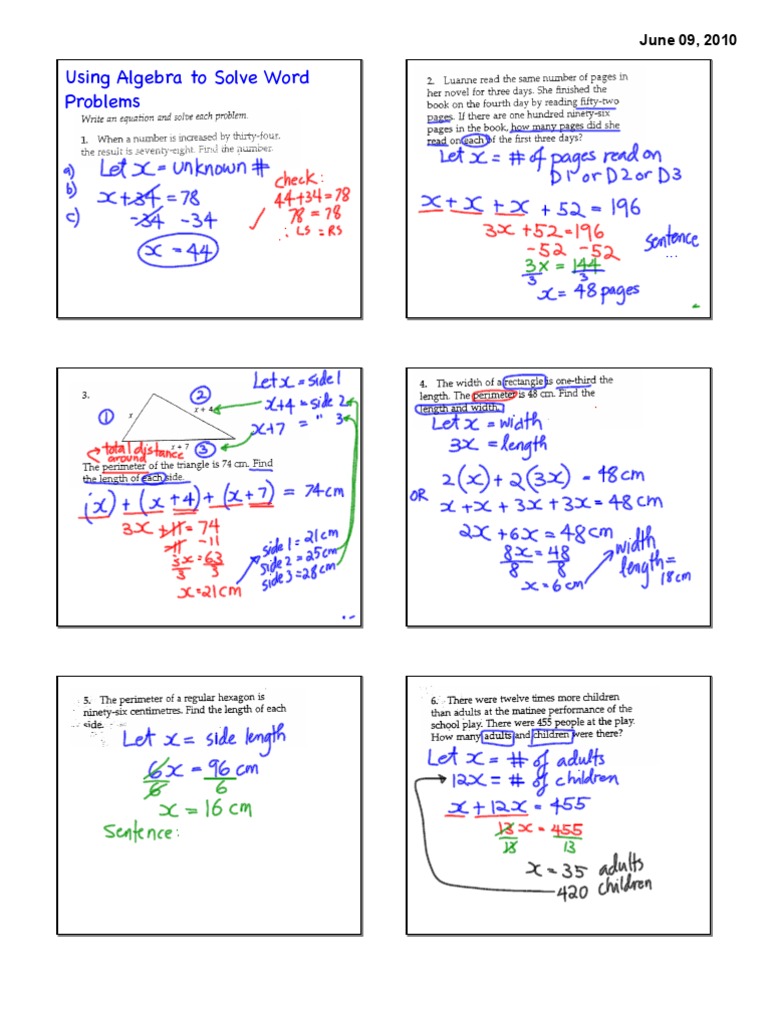 June 09, 2010
Using Algebra to Solve Word
Problems
Write an equation and solve each problem.
1. When a number is increased by thirty-four,
the result is seventy-eight. Find the number.
a) Let x = unknown #
b) x + 34 = 78
c) -34 -34
x = 44
check:
44+34=78
78 = 78
∴ LS = RS
2. Luanne read the same number of pages in
her novel for three days. She finished the
book on the fourth day by reading fifty-two
pages. If there are one hundred ninety-six
pages in the book, how many pages did she
read on each of the first three days?
Let x = # of pages read on
D1 or D2 or D3
x + x + x + 52 = 196
3x + 52 = 196
-52 -52
3x = 144
3 3
x = 48 pages
sentence
...
3.
Let x = side 1
x+4 = side 2
x+7 = " 3
① ② ③
x
x + 4
x + 7
total distance
around
The perimeter of the triangle is 74 cm. Find
the length of each side.
(x) + (x + 4) + (x + 7) = 74cm
3x + 11 = 74
-11 -11
3x = 63
3 3
x = 21cm
side 1 = 21cm
side 2 = 25cm
side 3 = 28cm
4. The width of a rectangle is one-third the
length. The perimeter is 48 cm. Find the
length and width.
Let x = width
3x = length
2(x) + 2(3x) = 48cm
OR x + x + 3x + 3x = 48cm
2x + 6x = 48cm
8x = 48
8 8
x = 6cm
width
length =
18cm
5. The perimeter of a regular hexagon is
ninety-six centimetres. Find the length of each
side.
Let x = side length
6x = 96 cm
6 6
x = 16 cm
Sentence:
6. There were twelve times more children
than adults at the matinee performance of the
school play. There were 455 people at the play.
How many adults and children were there?
Let x = # of adults
12x = # of children
x + 12x = 455
13x = 455
13 13
x = 35 adults
420 children